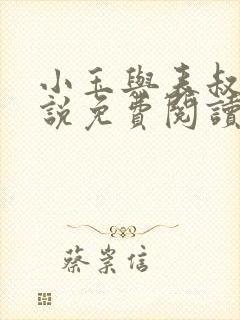 小玉與表叔
說免費閱讀
蔡崇信